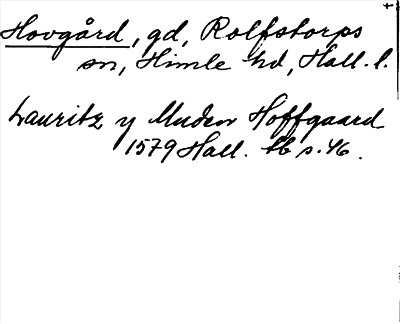 Hovgård, gd, Rolfstorps
sn, Himle hd, Hall. l.
Lauritz y Muden Hoffgaard
1579 Hall. tb s. 46.